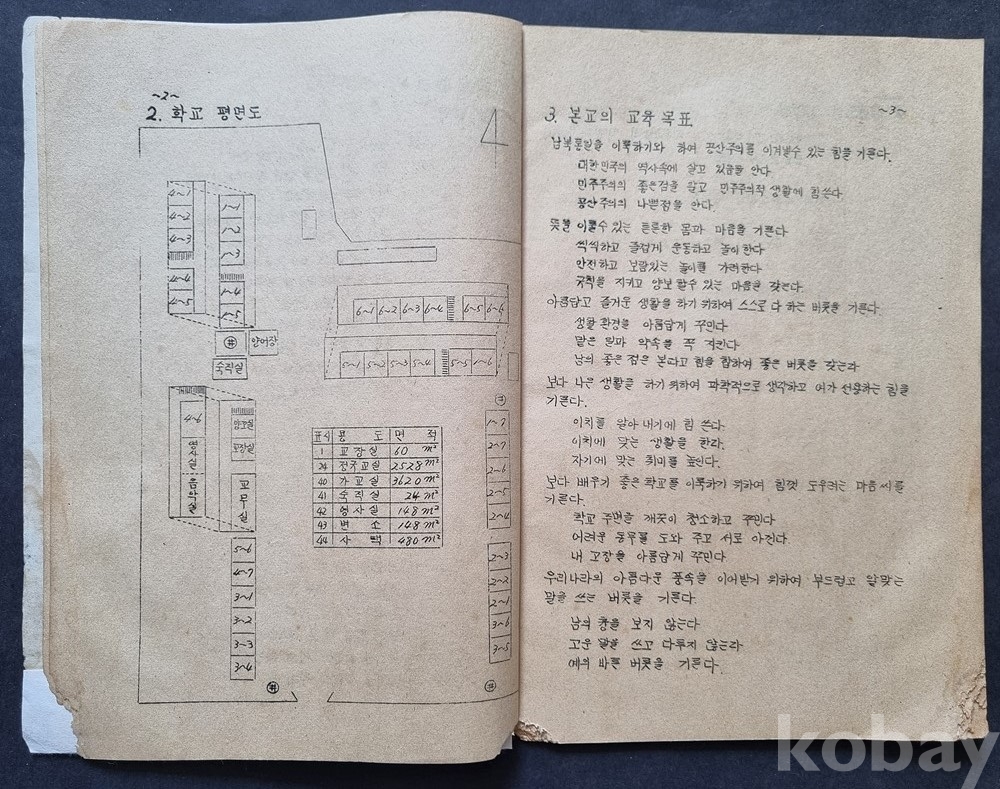 ~2~
2. 학교 평면도
4~1
4~2
4~3
4~4
4~5
1~1
1~2
1~3
1~4
1~5
井
양어장
숙직실
6~1 6~2 6~3 6~4 6~5 6~6
5~1 5~2 5~3 5~4 5~5 1~6
4~6
음악실
교장실
교무실
5~6
4~7
3~1
3~2
3~3
3~4
井
표시 용도 면적
1 교장실 60 m²
24 정규교실 2528 m²
40 가교실 3620 m²
41 숙직실 24 m²
42 영사실 148 m²
43 변소 148 m²
44 사택 480 m²
井
1~7
2~7
2~6
2~5
2~4
2~3
2~2
2~1
3~6
3~5
井
~3~
3. 본교의 교육 목표
남북통일을 이룩하기와 하여 공산주의를 이겨낼수 있는 힘을 기른다.
대한민국의 역사속에 살고 있음을 안다
민주주의의 좋은점을 알고 민주주의적 생활에 힘쓴다
공산주의의 나쁜점을 안다.
뜻을 이룰수 있는 튼튼한 몸과 마음을 기른다
씩씩하고 즐겁게 운동하고 놀이한다
안전하고 보람있는 놀이를 가려한다
규칙을 지키고 양보 할수 있는 마음을 갖는다
아름답고 즐거운 생활을 하기 위하여 스스로 다 하는 버릇을 기른다.
생활 환경을 아름답게 꾸민다
맡은 일과 약속을 꼭 지킨다
남의 좋은 점은 본다고 힘을 합하여 좋은 버릇을 갖는다
보다 나은 생활을 하기 위하여 과학적으로 생각하고 여가 선용하는 힘을
기른다.
이치를 알아 내기에 힘 쓴다.
이치에 맞는 생활을 한다.
자기에 맞는 취미를 높인다.
보다 배우기 좋은 학교를 이룩하기 위하여 힘껏 도우려는 마음 씨를
기른다.
학교 주변을 깨끗이 청소하고 꾸민다
어려운 동무를 도와 주고 서로 아낀다.
내 고장을 아름답게 꾸민다.
우리나라의 아름다운 풍속을 이어받기 위하여 부드럽고 알맞는
말을 쓰는 버릇을 기른다.
남의 흉을 보지 않는다
고운 말을 쓰고 다투지 않는다
예의 바른 버릇을 기른다.
kobay